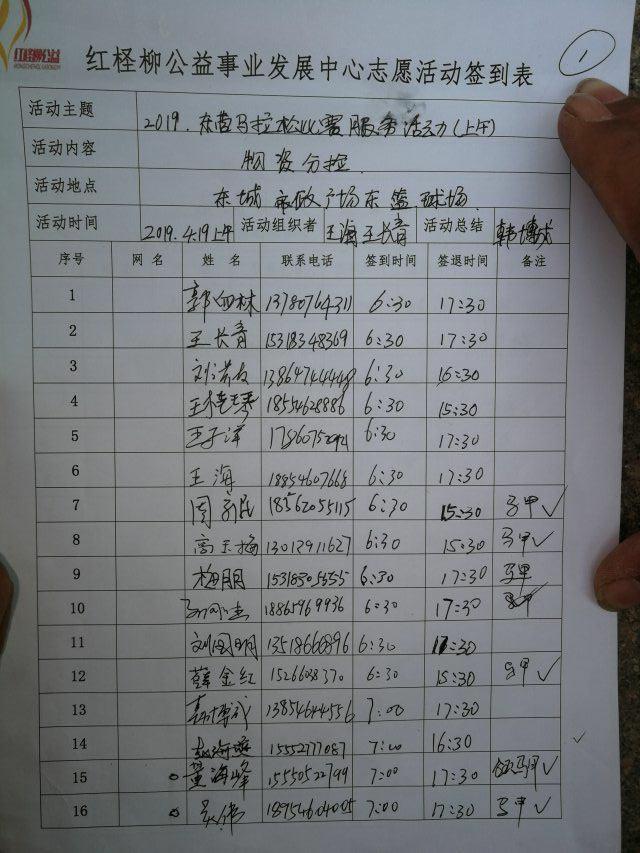 红柽柳公益
红柽柳公益事业发展中心志愿活动签到表
1
活动主题 2019.东营马拉松比赛服务活动(上午)
活动内容 物资分捡
活动地点 东城市政广场东篮球场
活动时间 2019.4.19上午 活动组织者 王海 王长青 活动总结 韩博成
序号 网名 姓名 联系电话 签到时间 签退时间 备注
1 13780764311 6:30 17:30
2 王长青 15318348369 6:30 17:30
3 13864744448 6:30 15:30
4 王桂琴 18554628886 6:30 15:30
5 王子洋 6:30 17:30
6 王海 18854607668 6:30 17:30
7 18562055115 6:30 15:30 马甲✓
8 高玉梅 13012911627 6:30 15:30 马甲✓
9 梅朋 6:30 17:30 马甲
10 18865969936 6:30 17:30
11 刘国明 13518666896 6:30 17:30
12 薛金红 6:30 15:30 马甲✓
13 13854644556 7:00 17:30
14 15552777087 7:00 16:30 ✓
15 董海峰 15550522799 7:00 17:30 ✓
16 吴伟 18954604005 7:00 17:30 马甲✓